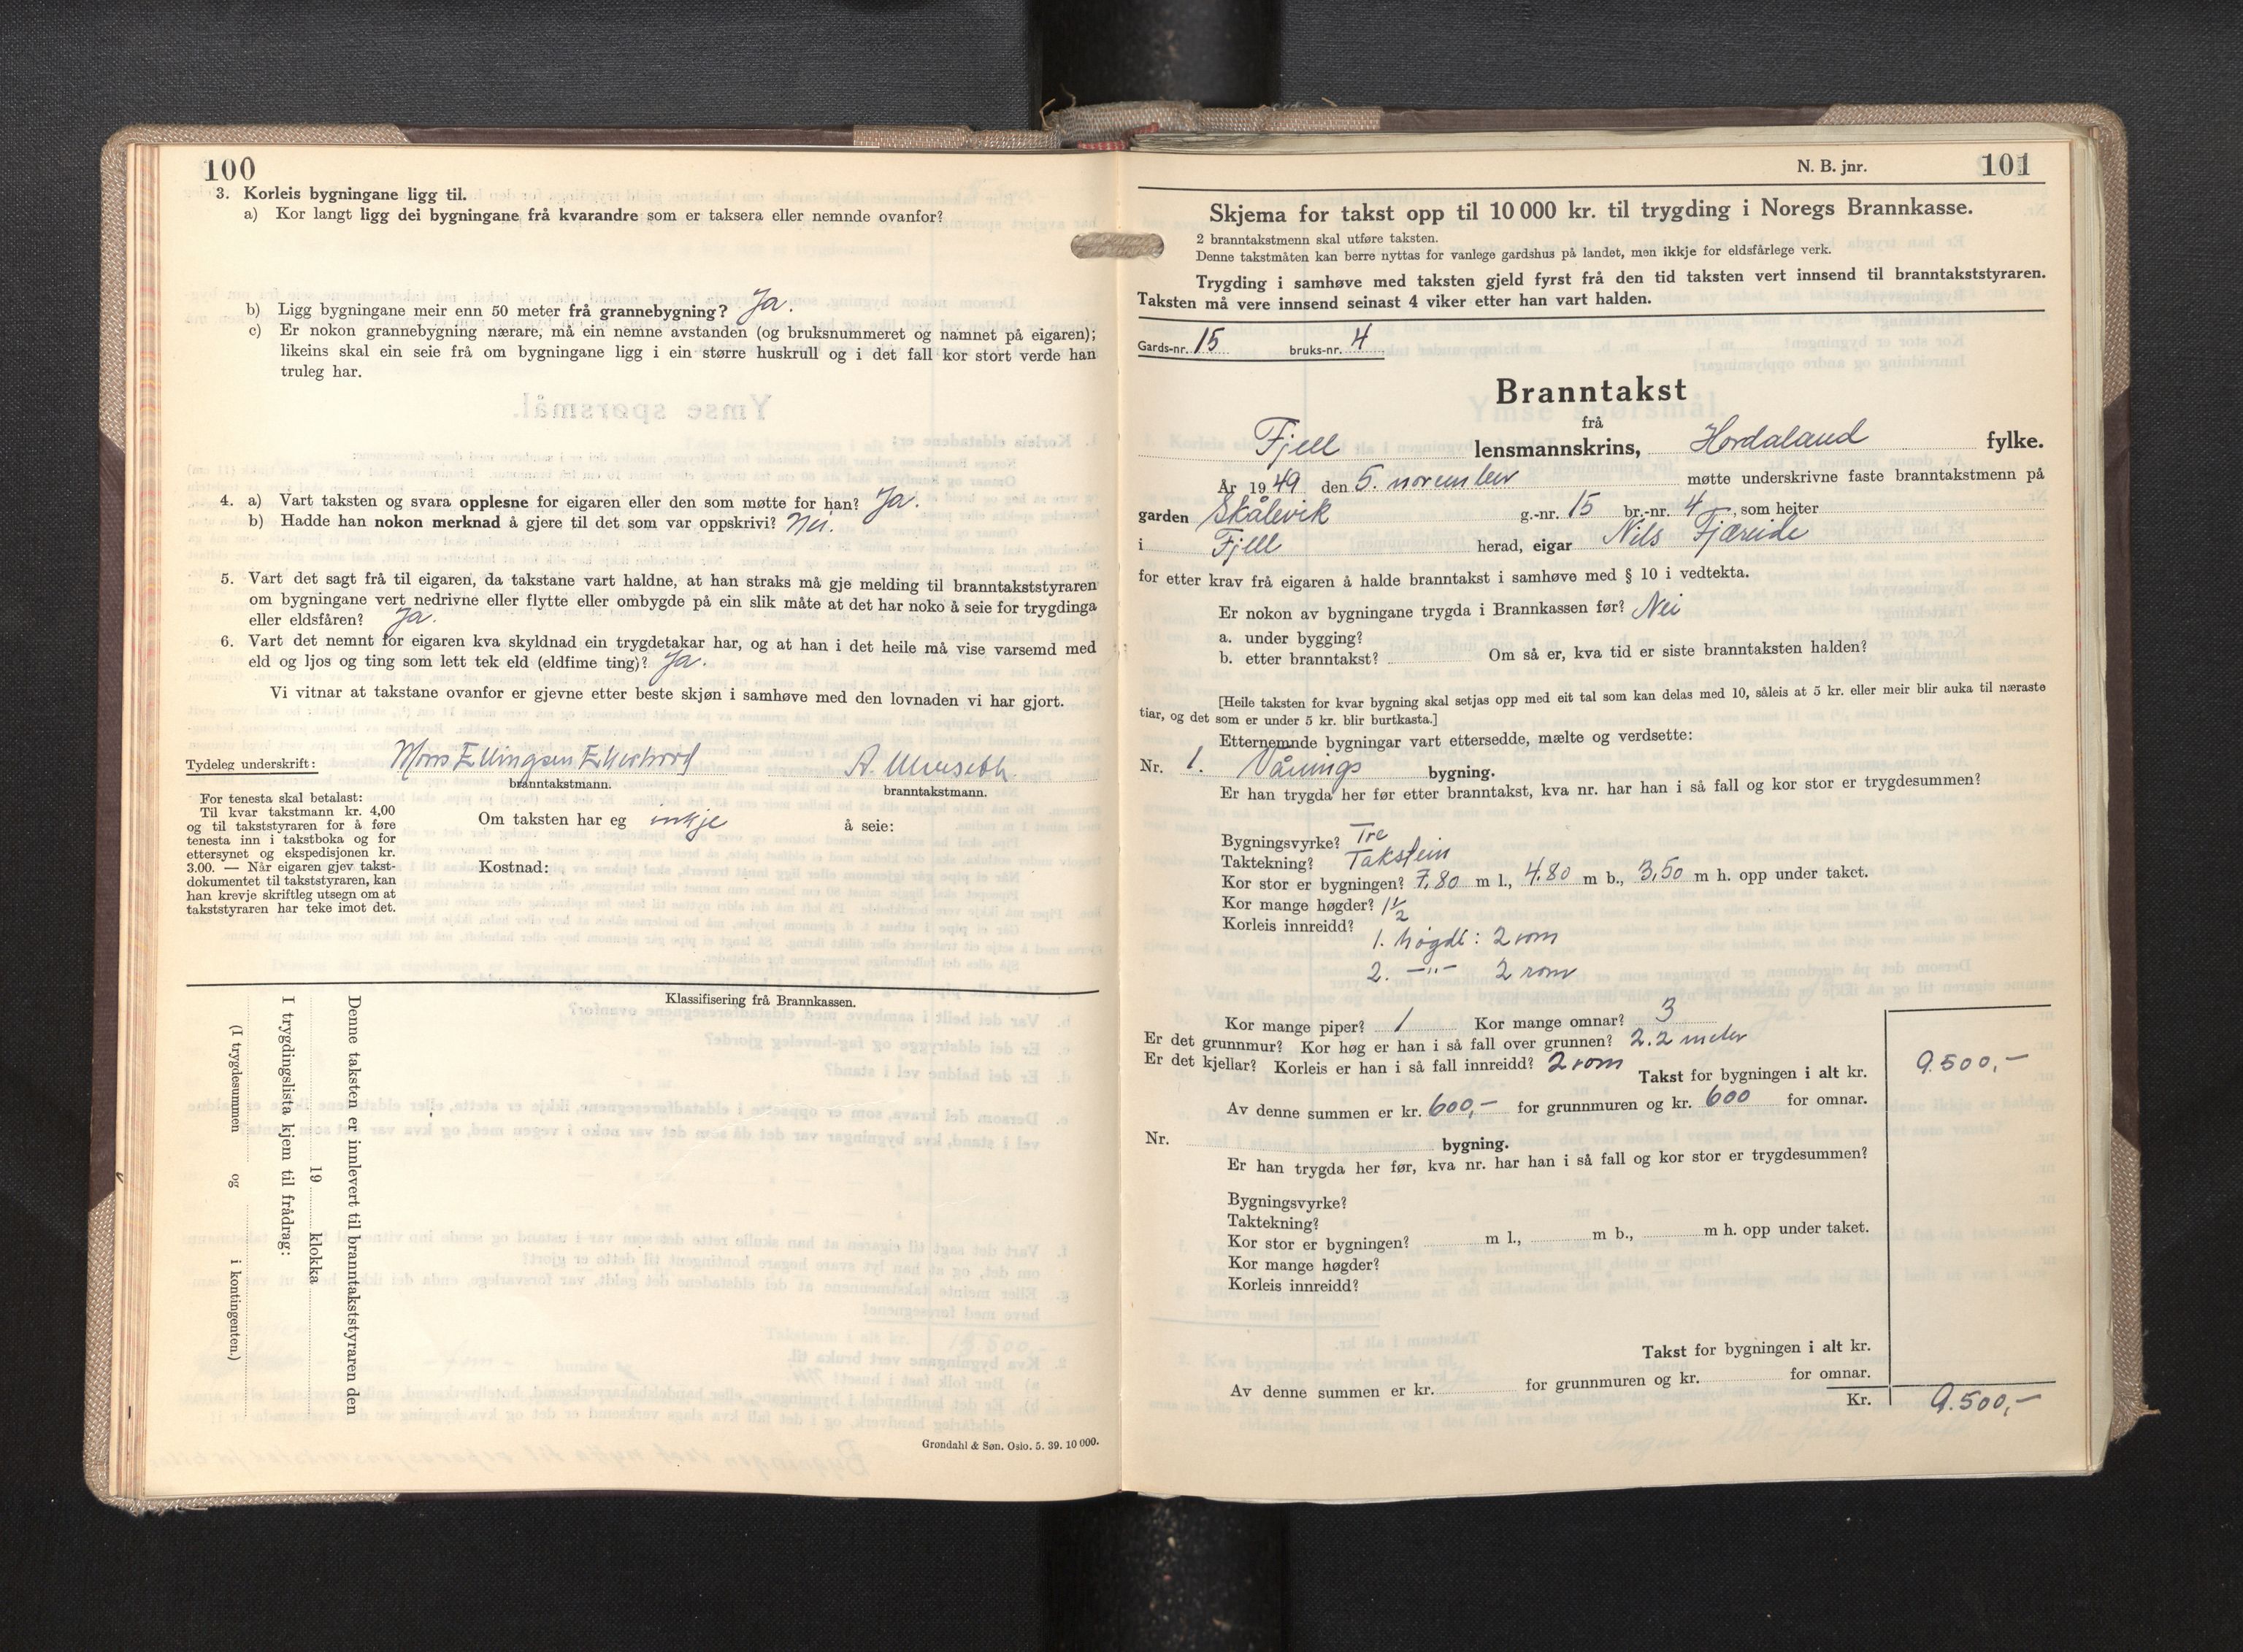 100
3. Korleis bygningane ligg til.
a) Kor langt ligg dei bygningane frå kvarandre som er taksera eller nemnde ovanfor?
b) Ligg bygningane meir enn 50 meter frå grannebygning? Ja.
c) Er nokon grannebygning nærare, må ein nemne avstanden (og bruksnummeret og namnet på eigaren);
likeins skal ein seie frå om bygningane ligg i ein større huskrull og i det fall kor stort verde han
truleg har.
4. a) Vart taksten og svara opplesne for eigaren eller den som møtte for han? Ja.
b) Hadde han nokon merknad å gjere til det som var oppskrivi? Nei.
5. Vart det sagt frå til eigaren, da takstane vart haldne, at han straks må gje melding til branntakststyraren
om bygningane vert nedrivne eller flytte eller ombygde på ein slik måte at det har noko å seie for trygdinga
eller eldsfåren? Ja.
6. Vart det nemnt for eigaren kva skyldnad ein trygdetakar har, og at han i det heile må vise varsemd med
eld og ljos og ting som lett tek eld (eldfime ting)? Ja.
Vi vitnar at takstane ovanfor er gjevne etter beste skjøn i samhøve med den lovnaden vi har gjort.
Tydeleg underskrift: Mons Ellingsen A.
branntakstmann. branntakstmann.
For tenesta skal betalast:
Til kvar takstmann kr. 4,00
og til takststyraren for å føre
tenesta inn i takstboka og for
ettersynet og ekspedisjonen kr.
3.00. — Når eigaren gjev takst-
dokumentet til takststyraren, kan
han krevje skriftleg utsegn om at
takststyraren har teke imot det.
Om taksten har eg inkje å seie:
Kostnad:
Klassifisering frå Brannkassen.
Denne taksten er innlevert til branntakststyraren den
19 klokka
I trygdingslista kjem til frådrag:
(I trygdesummen og i kontingenten.)
Grøndahl & Søn. Oslo. 5. 39. 10 000.
N. B. jnr. 101
Skjema for takst opp til 10 000 kr. til trygding i Noregs Brannkasse.
2 branntakstmenn skal utføre taksten.
Denne takstmåten kan berre nyttas for vanlege gardshus på landet, men ikkje for eldsfårlege verk.
Trygding i samhøve med taksten gjeld fyrst frå den tid taksten vert innsend til branntakststyraren.
Taksten må vere innsend seinast 4 viker etter han vart halden.
Gards-nr. 15 bruks-nr. 4
Branntakst
frå
Fjell lensmannskrins, Hordaland fylke.
År 1949 den 5. november møtte underskrivne faste branntakstmenn på
garden Skålevik g.-nr. 15 br.-nr. 4, som heiter
i Fjell herad, eigar Nils Fjæreide
for etter krav frå eigaren å halde branntakst i samhøve med § 10 i vedtekta.
Er nokon av bygningane trygda i Brannkassen før? Nei
a. under bygging?
b. etter branntakst? Om så er, kva tid er siste branntaksten halden?
[Heile taksten for kvar bygning skal setjas opp med eit tal som kan delas med 10, såleis at 5 kr. eller meir blir auka til næraste
tiar, og det som er under 5 kr. blir burtkasta.]
Etternemnde bygningar vart ettersedde, mælte og verdsette:
Nr. 1. Vånings bygning.
Er han trygda her før etter branntakst, kva nr. har han i så fall og kor stor er trygdesummen?
Bygningsvyrke? Tre
Taktekning? Takstein
Kor stor er bygningen? 7,80 m l., 4.80 m b., 3,50 m h. opp under taket.
Kor mange høgder? 1 1/2
Korleis innreidd?
1. høgde: 2 rom
2. —"— 2 rom
Kor mange piper? 1 Kor mange omnar? 3
Er det grunnmur? Kor høg er han i så fall over grunnen? 2.2 meter
Er det kjellar? Korleis er han i så fall innreidd? 2 rom
Takst for bygningen i alt kr. 9.500,-
Av denne summen er kr. 600,- for grunnmuren og kr. 600 for omnar.
Nr. bygning.
Er han trygda her før, kva nr. har han i så fall og kor stor er trygdesummen?
Bygningsvyrke?
Taktekning?
Kor stor er bygningen? m l., m b., m h. opp under taket.
Kor mange høgder?
Korleis innreidd?
Takst for bygningen i alt kr.
Av denne summen er kr. for grunnmuren og kr. for omnar.
Kr. 9.500,-